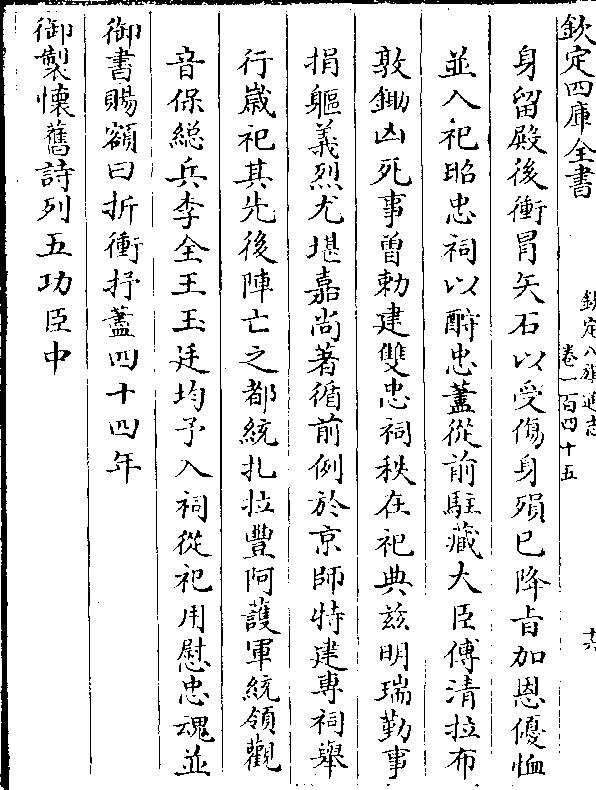 欽定四庫全書
欽定八旗通志
卷一百四十五
十六
身留殿後衝冒矢石以受傷身殞已降旨加恩優恤
並入祀昭忠祠以酧忠藎從前駐藏大臣傅清拉布
敦鋤凶死事曾勅建雙忠祠秩在祀典兹明瑞勤事
捐軀義烈尤堪嘉尚著循前例於京師特建專祠舉
行嵗祀其先後陣亡之都統扎拉豐阿護軍統領觀
音保總兵李全王玉廷均予入祠從祀用慰忠魂並
御書賜額曰折衝抒藎四十四年
御製懷舊詩列五功臣中